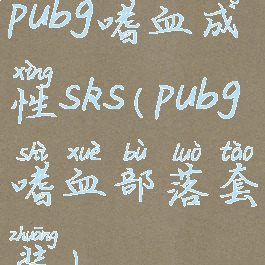 pubg嗜血成
xìng
性sks(pubg
shì xuè bù luò tào
嗜血部落套
zhuāng
装)